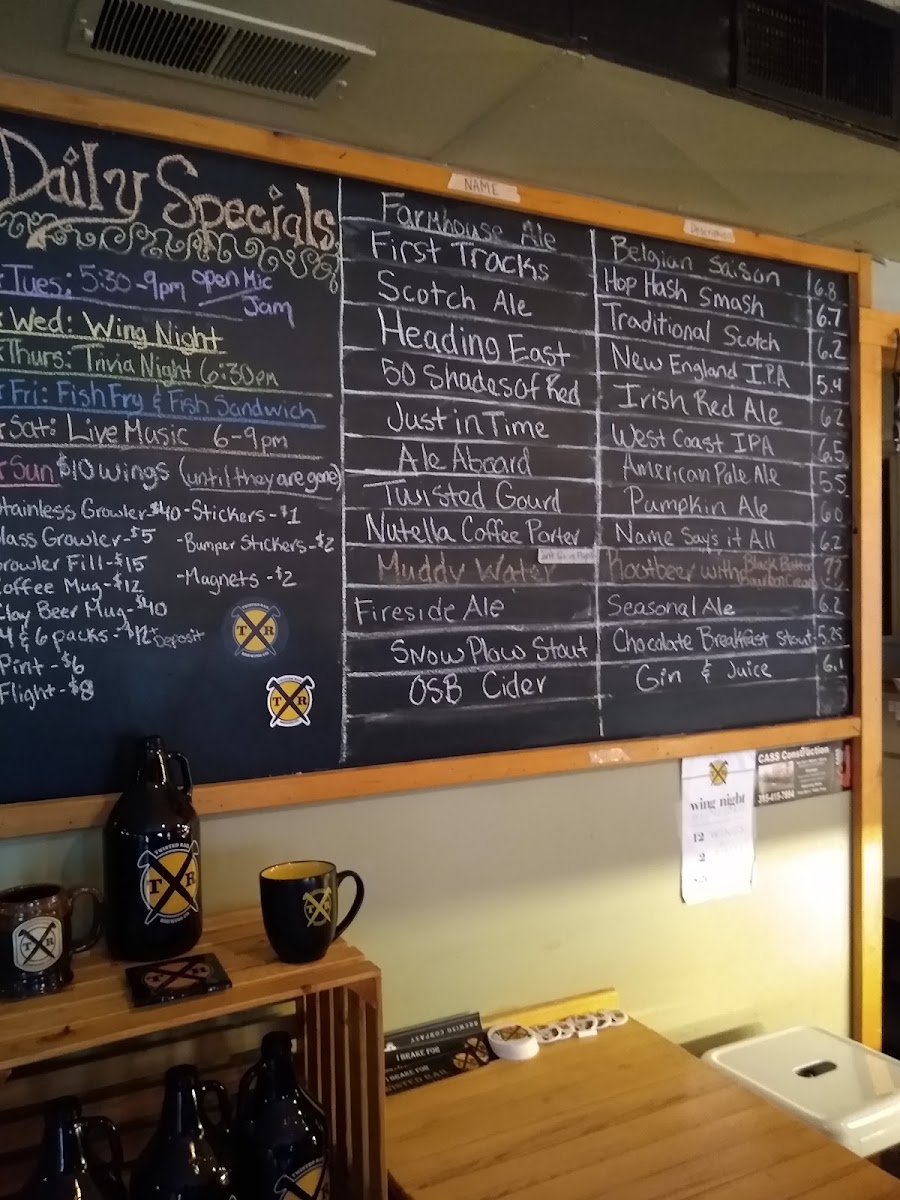 Daily Specials
Tues: 5:30-9pm open Mic
Jam
Wed: Wing Night
Thurs: Trivia Night 6:30pm
Fri: Fish Fry & Fish Sandwich
Sat: Live Music 6-9pm
Sun $10 wings (until they are gone)
Stainless Growler $40
Glass Growler-$5
Growler Fill-$15
Coffee Mug-$12
Clay Beer Mug-$40
4 & 6 packs-$12 Deposit
Pint-$6
Flight-$8
-Stickers-$1
-Bumper Stickers-$2
-Magnets-$2
TWISTED RAIL
T R
BREWING CO.
T R
NAME
Description
Farmhouse Ale Belgian Saison 6.8
First Tracks Hop Hash Smash 6.7
Scotch Ale Traditional Scotch 6.2
Heading East New England I.P.A 5.4
50 Shades of Red Irish Red Ale 6.2
Just in Time West Coast IPA 6.5
Ale Aboard American Pale Ale 5.5
Twisted Gourd Pumpkin Ale 6.0
Nutella Coffee Porter Name Says it All 6.2
Muddy Water Rootbeer with Black Butter Bourbon Cream ??
Fireside Ale Seasonal Ale 6.2
Snow Plow Stout Chocolate Breakfast Stout 5.25
OSB Cider Gin & Juice 6.1
CASS Construction
315-415-7894
wing night
12
2
TWISTED RAIL
T R
BREWING CO
T R
T R
BREWING COMPANY
I BRAKE FOR
I BRAKE FOR
TWISTED RAIL